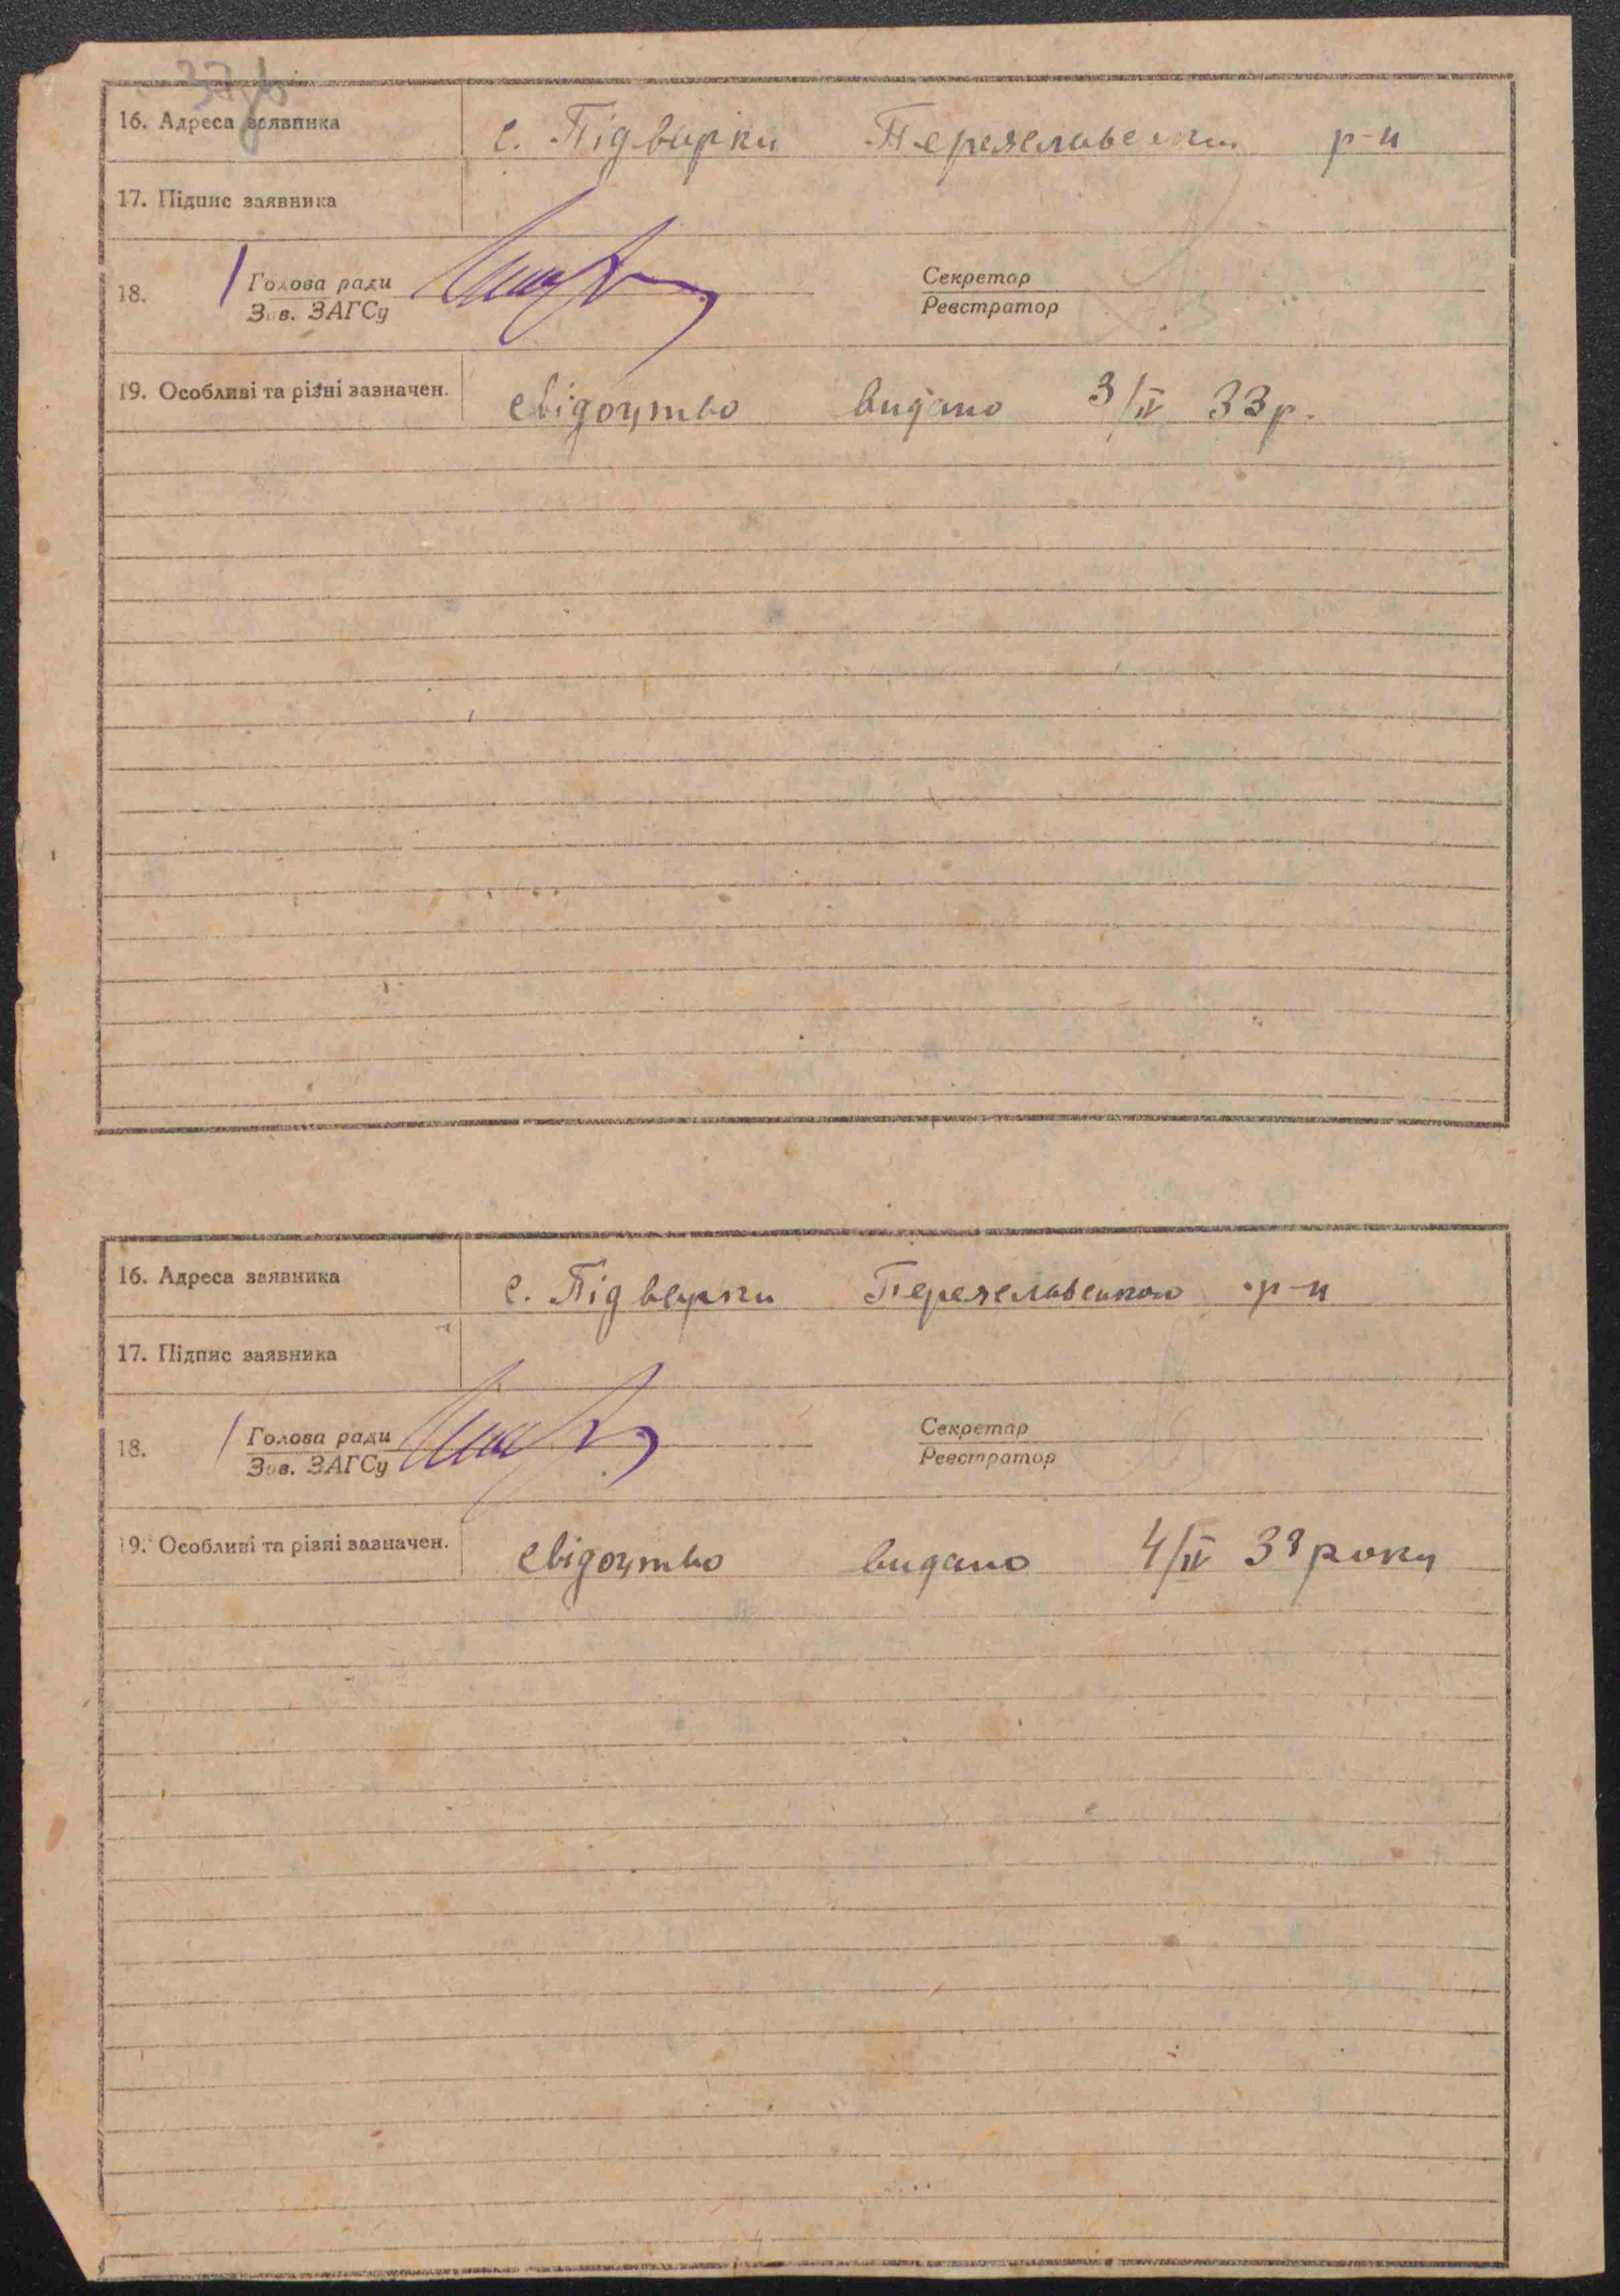 16. Адреса заявника с. Підварки Переяславськ р-н
17. Підпис заявника
18. Голова ради Секретар
Зав. ЗАГСу Реєстратор
19. Особливі та різні зазначен. свідоцтво видано 3/IV 33 р.
16. Адреса заявника с. Підварки Переяславського р-н
17. Підпис заявника
18. Голова ради Секретар
Зав. ЗАГСу Реєстратор
19. Особливі та різні зазначен. свідоцтво видано 4/IV 33 року